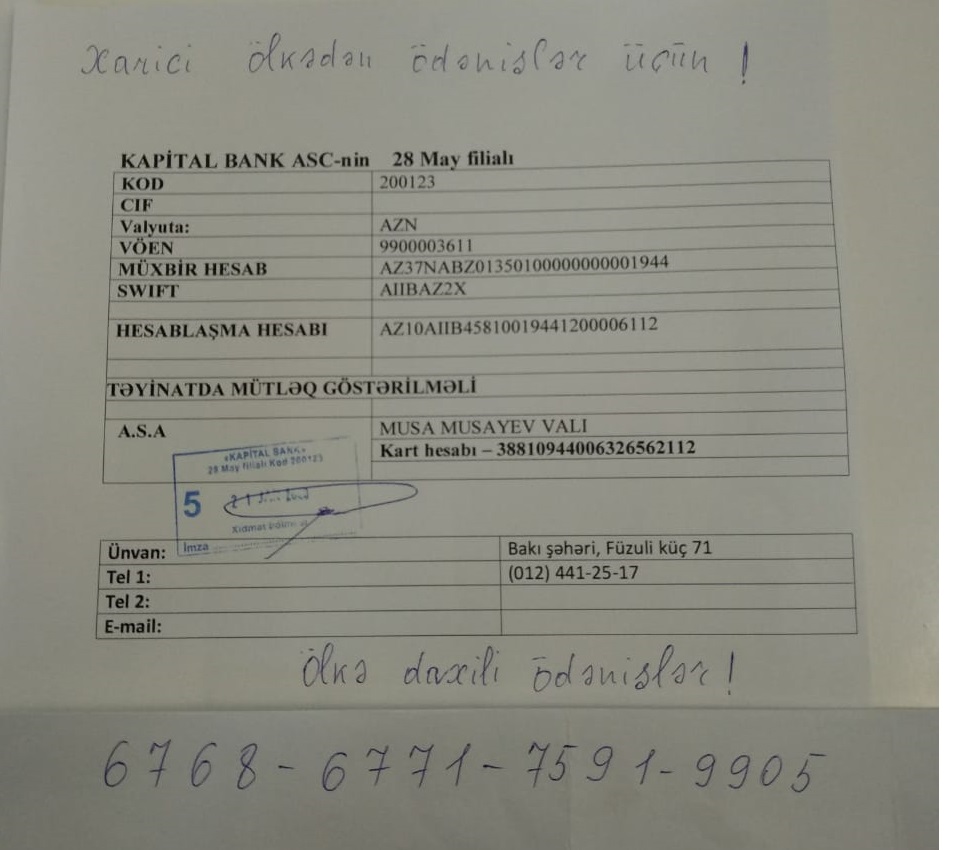 Xarici ölkədən ödənişlər üçün!
KAPİTAL BANK ASC-nin 28 May filialı
KOD 200123
CIF
Valyuta: AZN
VÖEN 9900003611
MÜXBİR HESAB AZ37NABZ01350100000000001944
SWIFT AIIBAZ2X
HESABLAŞMA HESABI AZ10AIIB45810019441200006112
TƏYİNATDA MÜTLƏQ GÖSTƏRİLMƏLİ
A.S.A MUSA MUSAYEV VALI
Kart hesabı – 38810944006326562112
«KAPİTAL BANK»
28 May filialı Kod 200123
5 21
Xidmət
İmza
Ünvan: Bakı şəhəri, Füzuli küç 71
Tel 1: (012) 441-25-17
Tel 2:
E-mail:
Ölkə daxili ödənişlər!
6768-6771-7591-9905